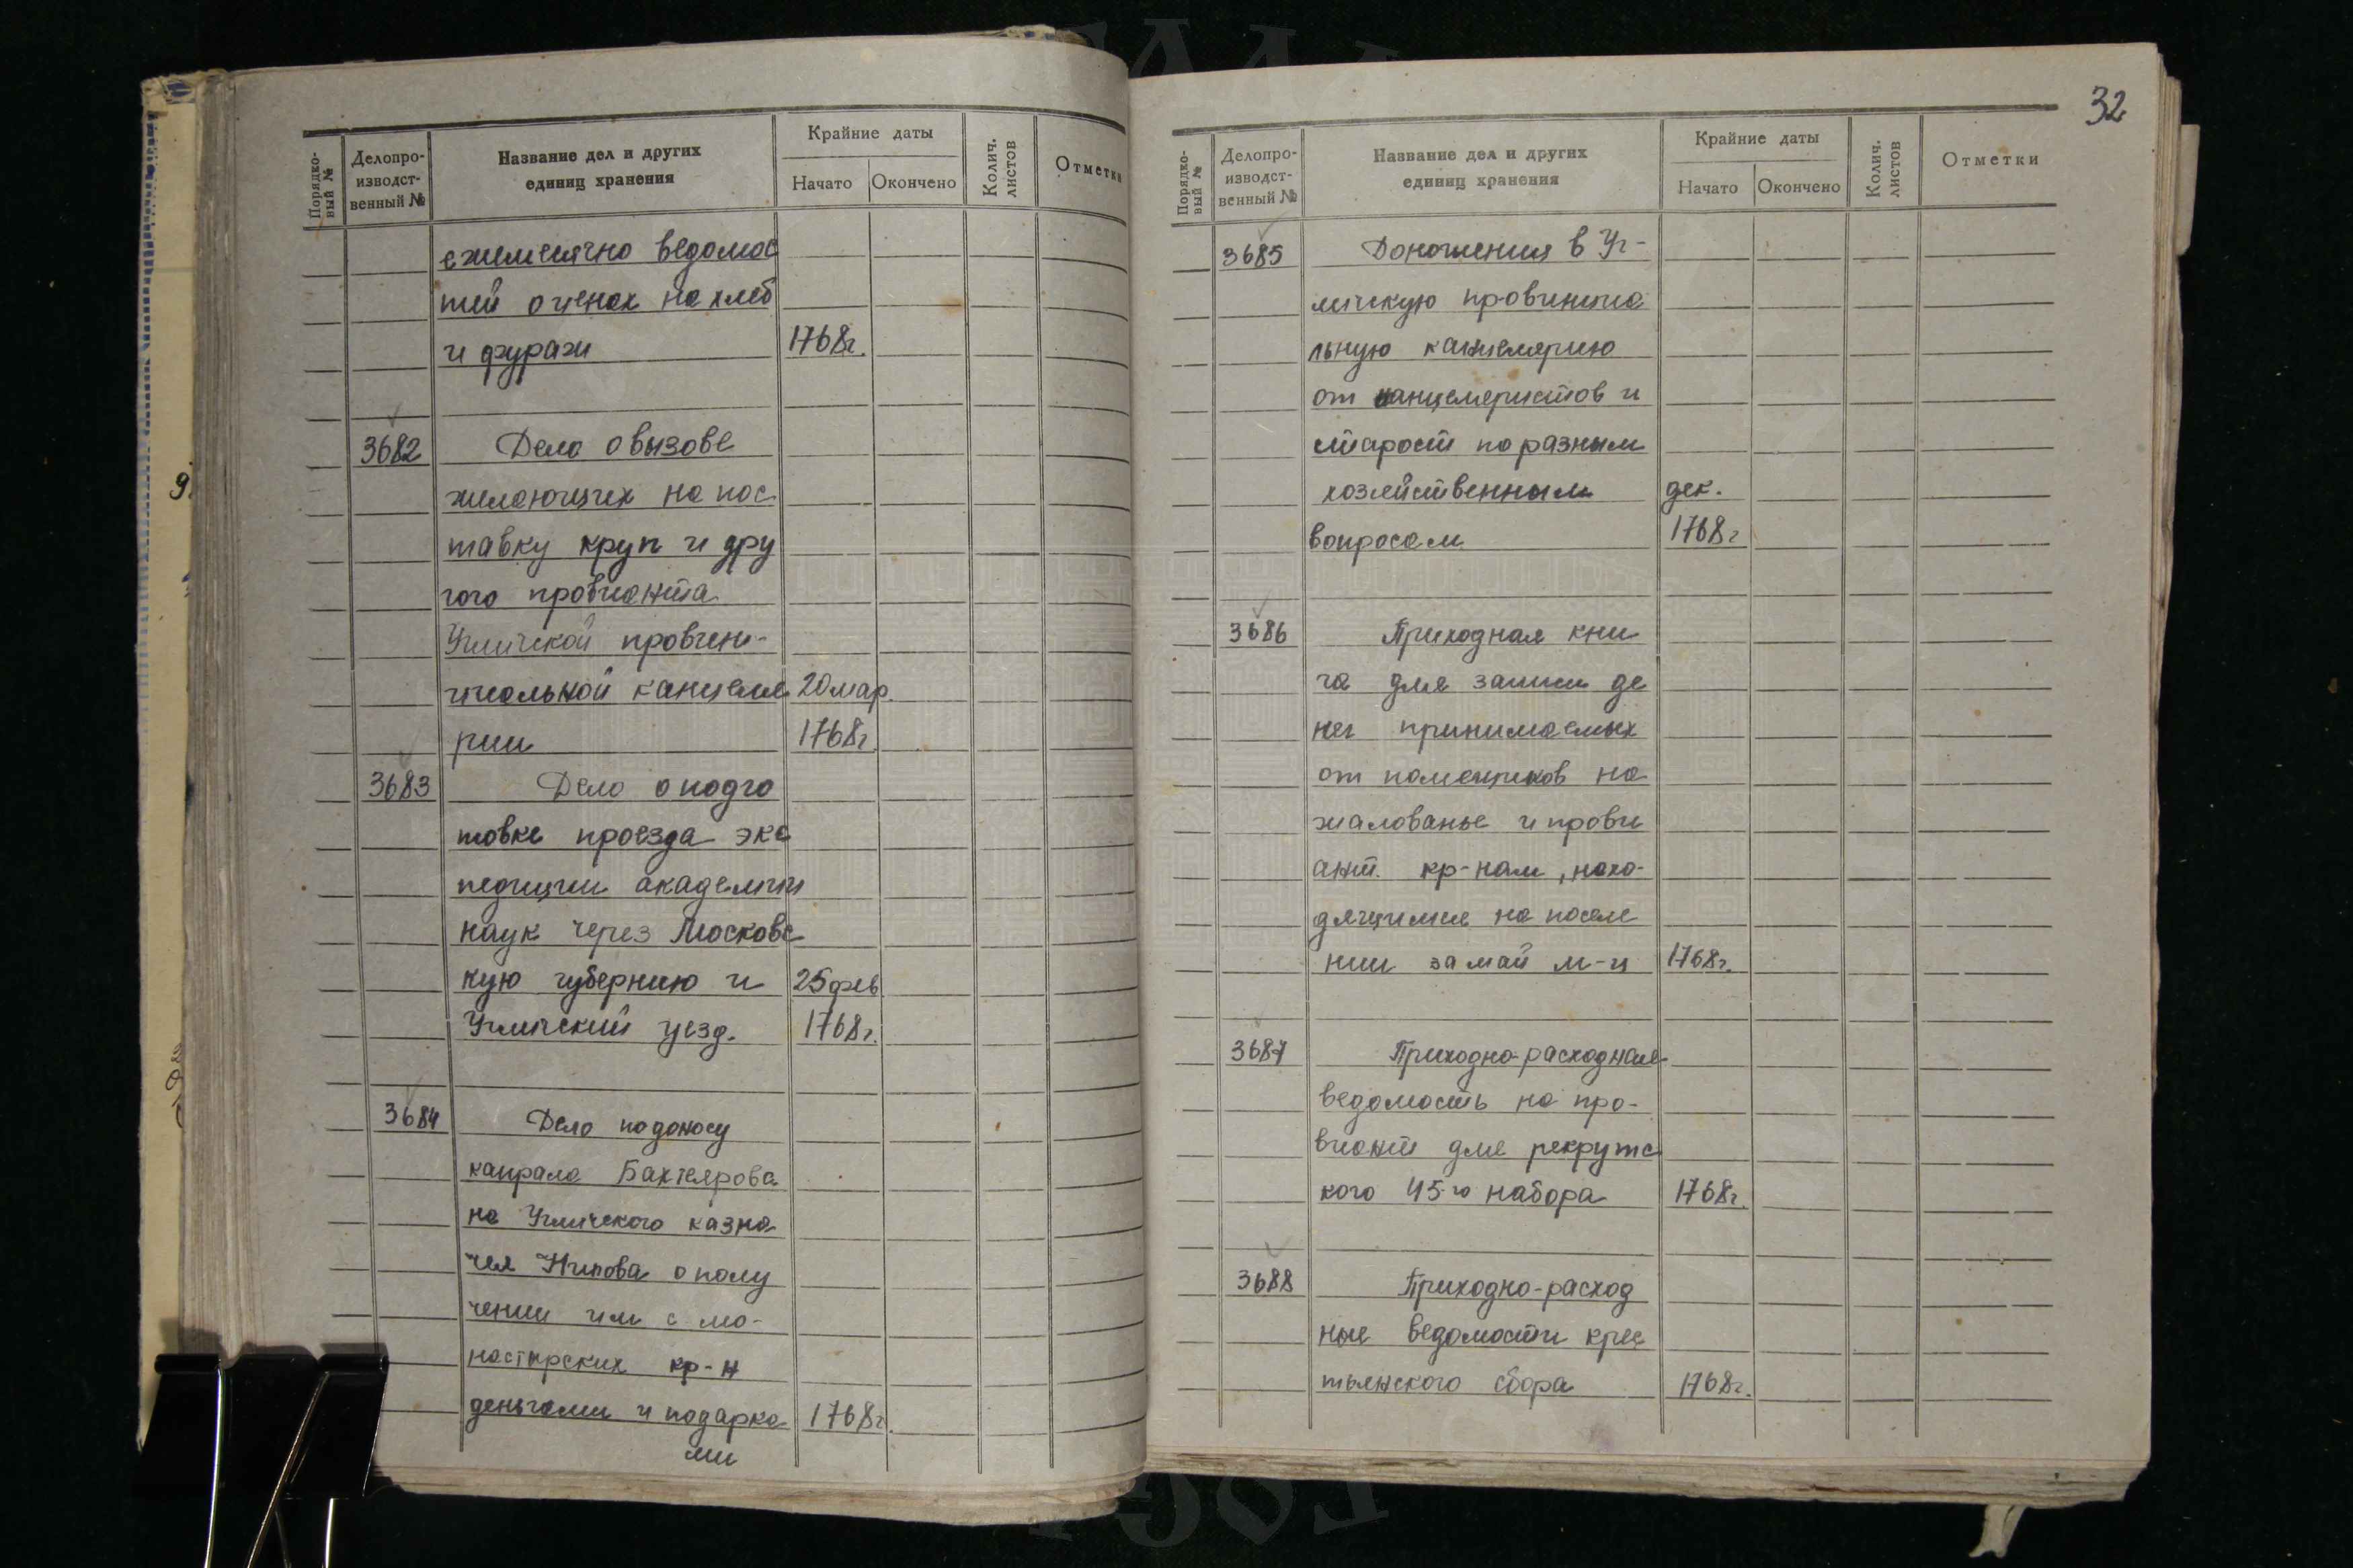 Порядко-
вый №
Делопро-
изводст-
венный №
Название дел и других
единиц хранения
Крайние даты
Начато
Окончено
Колич.
листов
Отметки
ежемесячно ведомос
тей о ценах на хлеб
и фураж 1768г.
3682 Дело о вызове
желающих на пос
тавку круп и дру
гого провианта
Угличской провин-
циальной канцеля 20 мар.
рии 1768г.
3683 Дело о подго
товке проезда экс
педиции академии
наук через Московс
кую губернию и 25 фев
Угличский уезд. 1768г.
3684 Дело по доносу
капрала Бахтеярова
на Угличского казна
чея о полу
чении им с мо-
настырских кр-н
деньгами и подарка 1768г.
ми
32
Порядко-
вый №
Делопро-
изводст-
венный №
Название дел и других
единиц хранения
Крайние даты
Начато
Окончено
Колич.
листов
Отметки
3685 Доношения в Уг-
личскую провинциа
льную канцелярию
от канцеляристов и
старост по разным
хозяйственным дек.
вопросам 1768г
3686 Приходная кни
га для записи де
нег принимаемых
от помещиков на
жалованье и прови
ант кр-нам, нахо-
дящимся на поселе
нии за май м-ц 1768г.
3687 Приходно-расходная
ведомость на про-
виант для рекрутс
кого 45-го набора 1768г.
3688 Приходно-расход
ные ведомости крес
тьянского сбора 1768г.